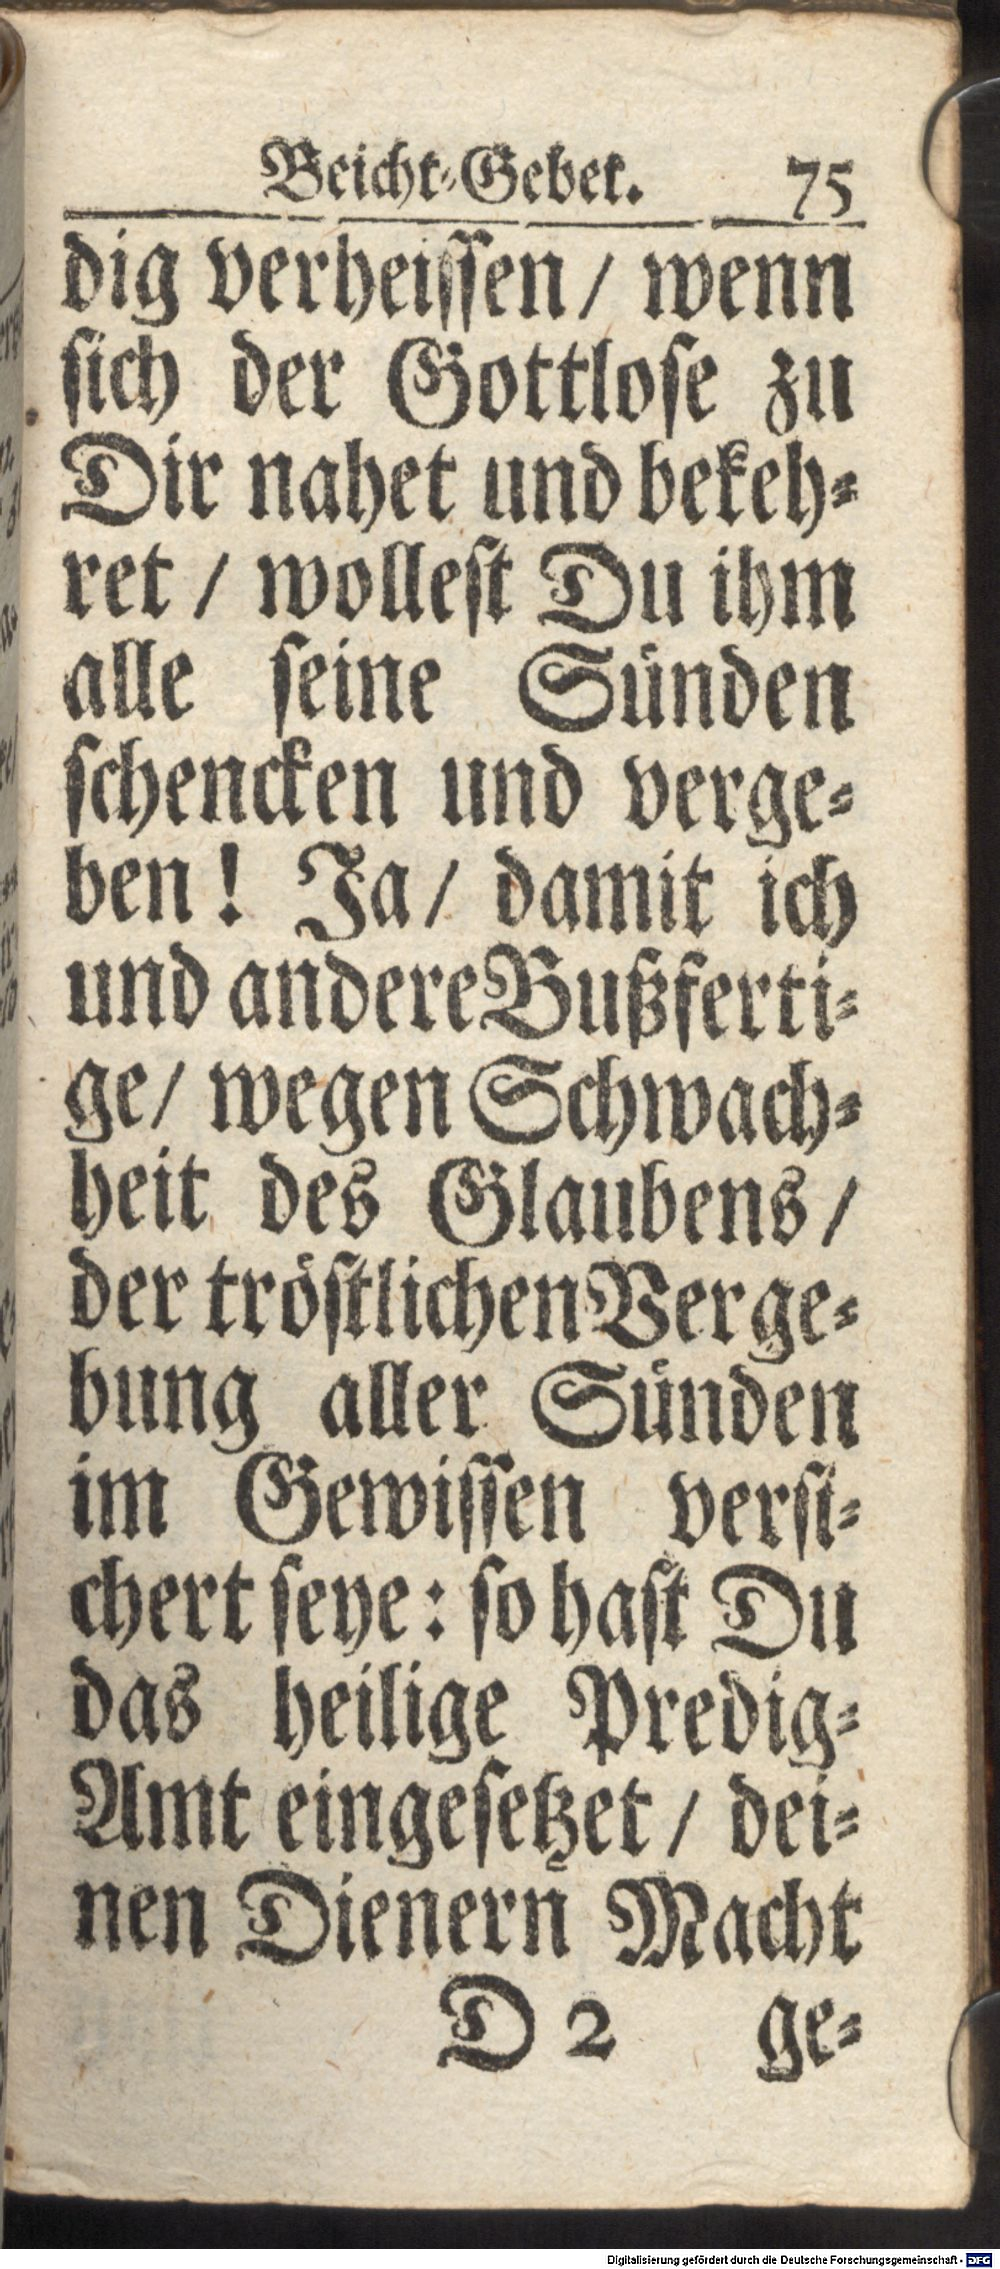 Beicht-Gebet. 75
dig verheiſſen / wenn
ſich der Gottloſe zu
Dir nahet und bekeh-
ret / wolleſt Du ihm
alle ſeine Sünden
ſchencken und verge-
ben! Ja / damit ich
und andere Bußferti-
ge / wegen Schwach-
heit des Glaubens /
der tröſtlichen Verge-
bung aller Sünden
im Gewiſſen verſi-
chert ſeye: ſo haſt Du
das heilige Predig-
Amt eingeſetzet / dei-
nen Dienern Macht
D 2 ge-
Digitalisierung gefördert durch die Deutsche Forschungsgemeinschaft - DFG